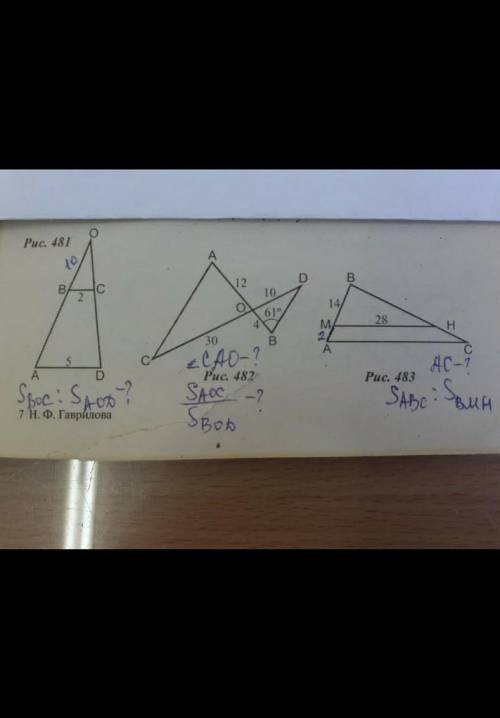 Рис. 481
O
10
B
2
C
5
A
D
S BOC : S AOD -?
7 Н. Ф. Гаврилова
A
12
D
10
O
61°
4
B
30
C
∠CAO-?
Рис. 482
S AOC
S BOD
-?
B
14
M
28
H
2
A
C
AC-?
Рис. 483
S ABC : S BMH